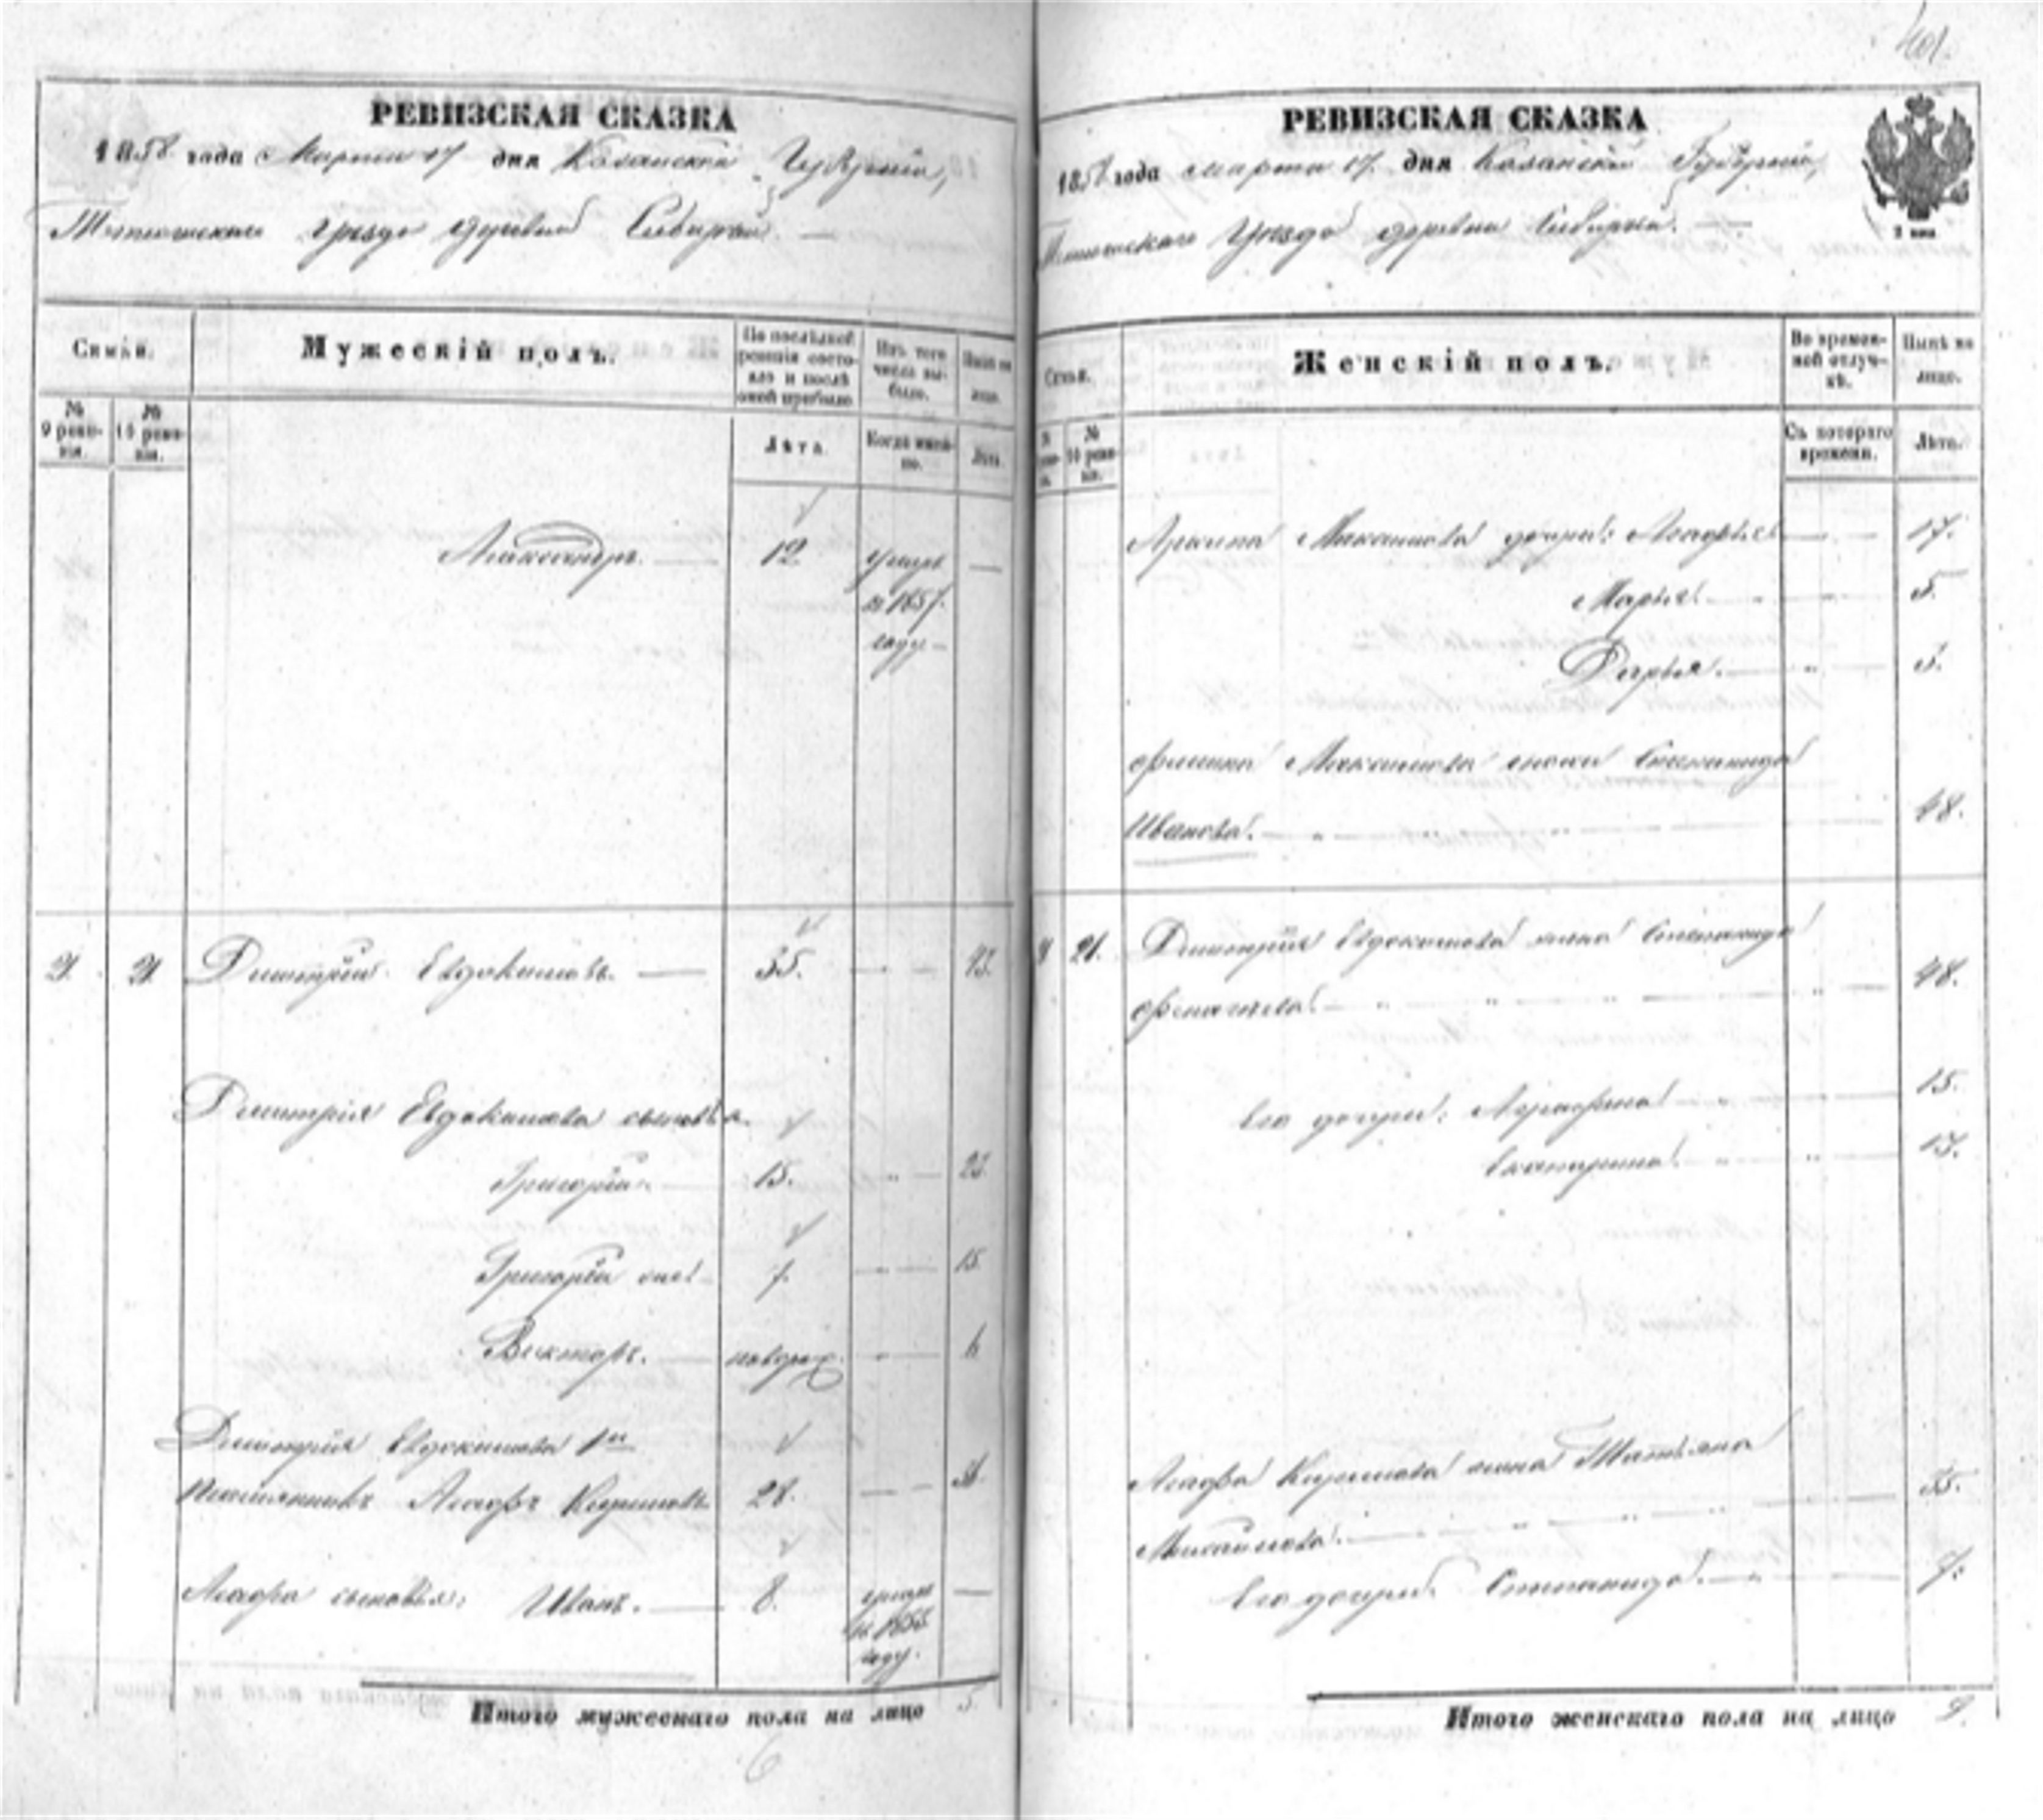 401.
РЕВИЗСКАЯ СКАЗКА
1858 года Марта 17 дня Казанской Губернии,
Тетюшскаго уезда деревни
Семьи.
Мужескій полъ.
По послѣдней ревизіи состояло и послѣ оной прибыло
Изъ того числа выбыло.
Нынѣ на лицо.
№ 9 ревизіи.
№ 10 ревизіи.
Лѣта.
Когда именно.
Лѣта.
Александръ. — 12. умеръ —
въ 1857.
году —
21. 21. Димитрій Евдокимовъ. — 35. — 43.
Димитрія Евдокимова сыновья.
Григорій. 15. — 23.
Григорій 7. — 15.
Викторъ. — новорож. — 6
Димитрія Евдокимова 1й
племянникъ Агафъ Кириловъ 28. — 36.
Агафа сыновья: Иванъ. — 8. умеръ —
году.
Итого мужескаго пола на лицо 5.
6
РЕВИЗСКАЯ СКАЗКА
1858 года марта 17. дня Казанской Губерніи,
Тетюшскаго Уезда деревни
2 коп
Семьи.
Женскій полъ.
Во временной отлучкѣ.
Нынѣ на лицо.
№ 10 ревизіи.
Съ котораго времени.
Лѣта.
Максимова дочери: Агафья — 17.
Марья. — 5.
Дарья. — 3.
Максимова Степанида
Иванова. — 48.
21. Димитрія Евдокимова жена Степанида
— 48.
Его дочери: Аграфена — 15.
Екатерина. — 13.
Агафа Кирилова жена Татьяна
Михайлова. — 35.
Его дочери. Степанида. — 7.
Итого женскаго пола на лицо 9.